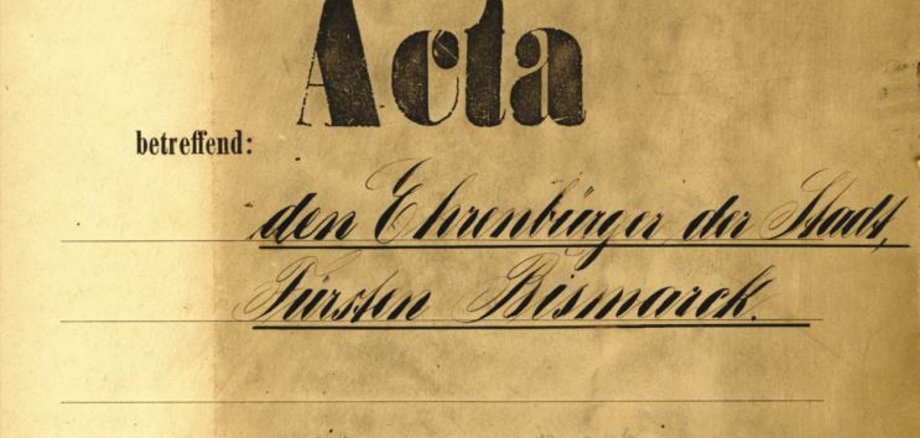 Acta
betreffend:
den Ehrenbürger der Stadt,
Fürsten Bismarck.